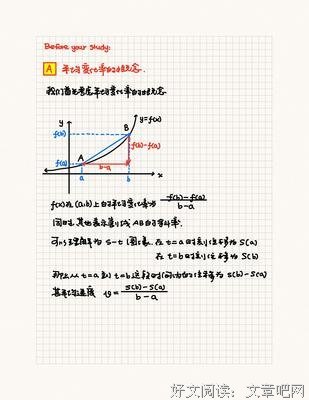 Before your study:
A 平均变化率的概念.
我们首先考虑平均变化率的概念
y
y=f(x)
f(b)
B
f(b)-f(a)
f(a)
A
b-a
a
b
x
f(x)在(a,b)上的平均变化率为 f(b)-f(a)
b-a
同时,其也表示割线AB的斜率.
可以理解为 s-t 图象. 在 t=a 时刻位移为 S(a)
在 t=b 时刻位移为 S(b)
那么从 t=a 到 t=b 这段时间内的位移为 S(b)-S(a)
其平均速度 v= S(b)-S(a)
b-a
好文阅读:文章吧网